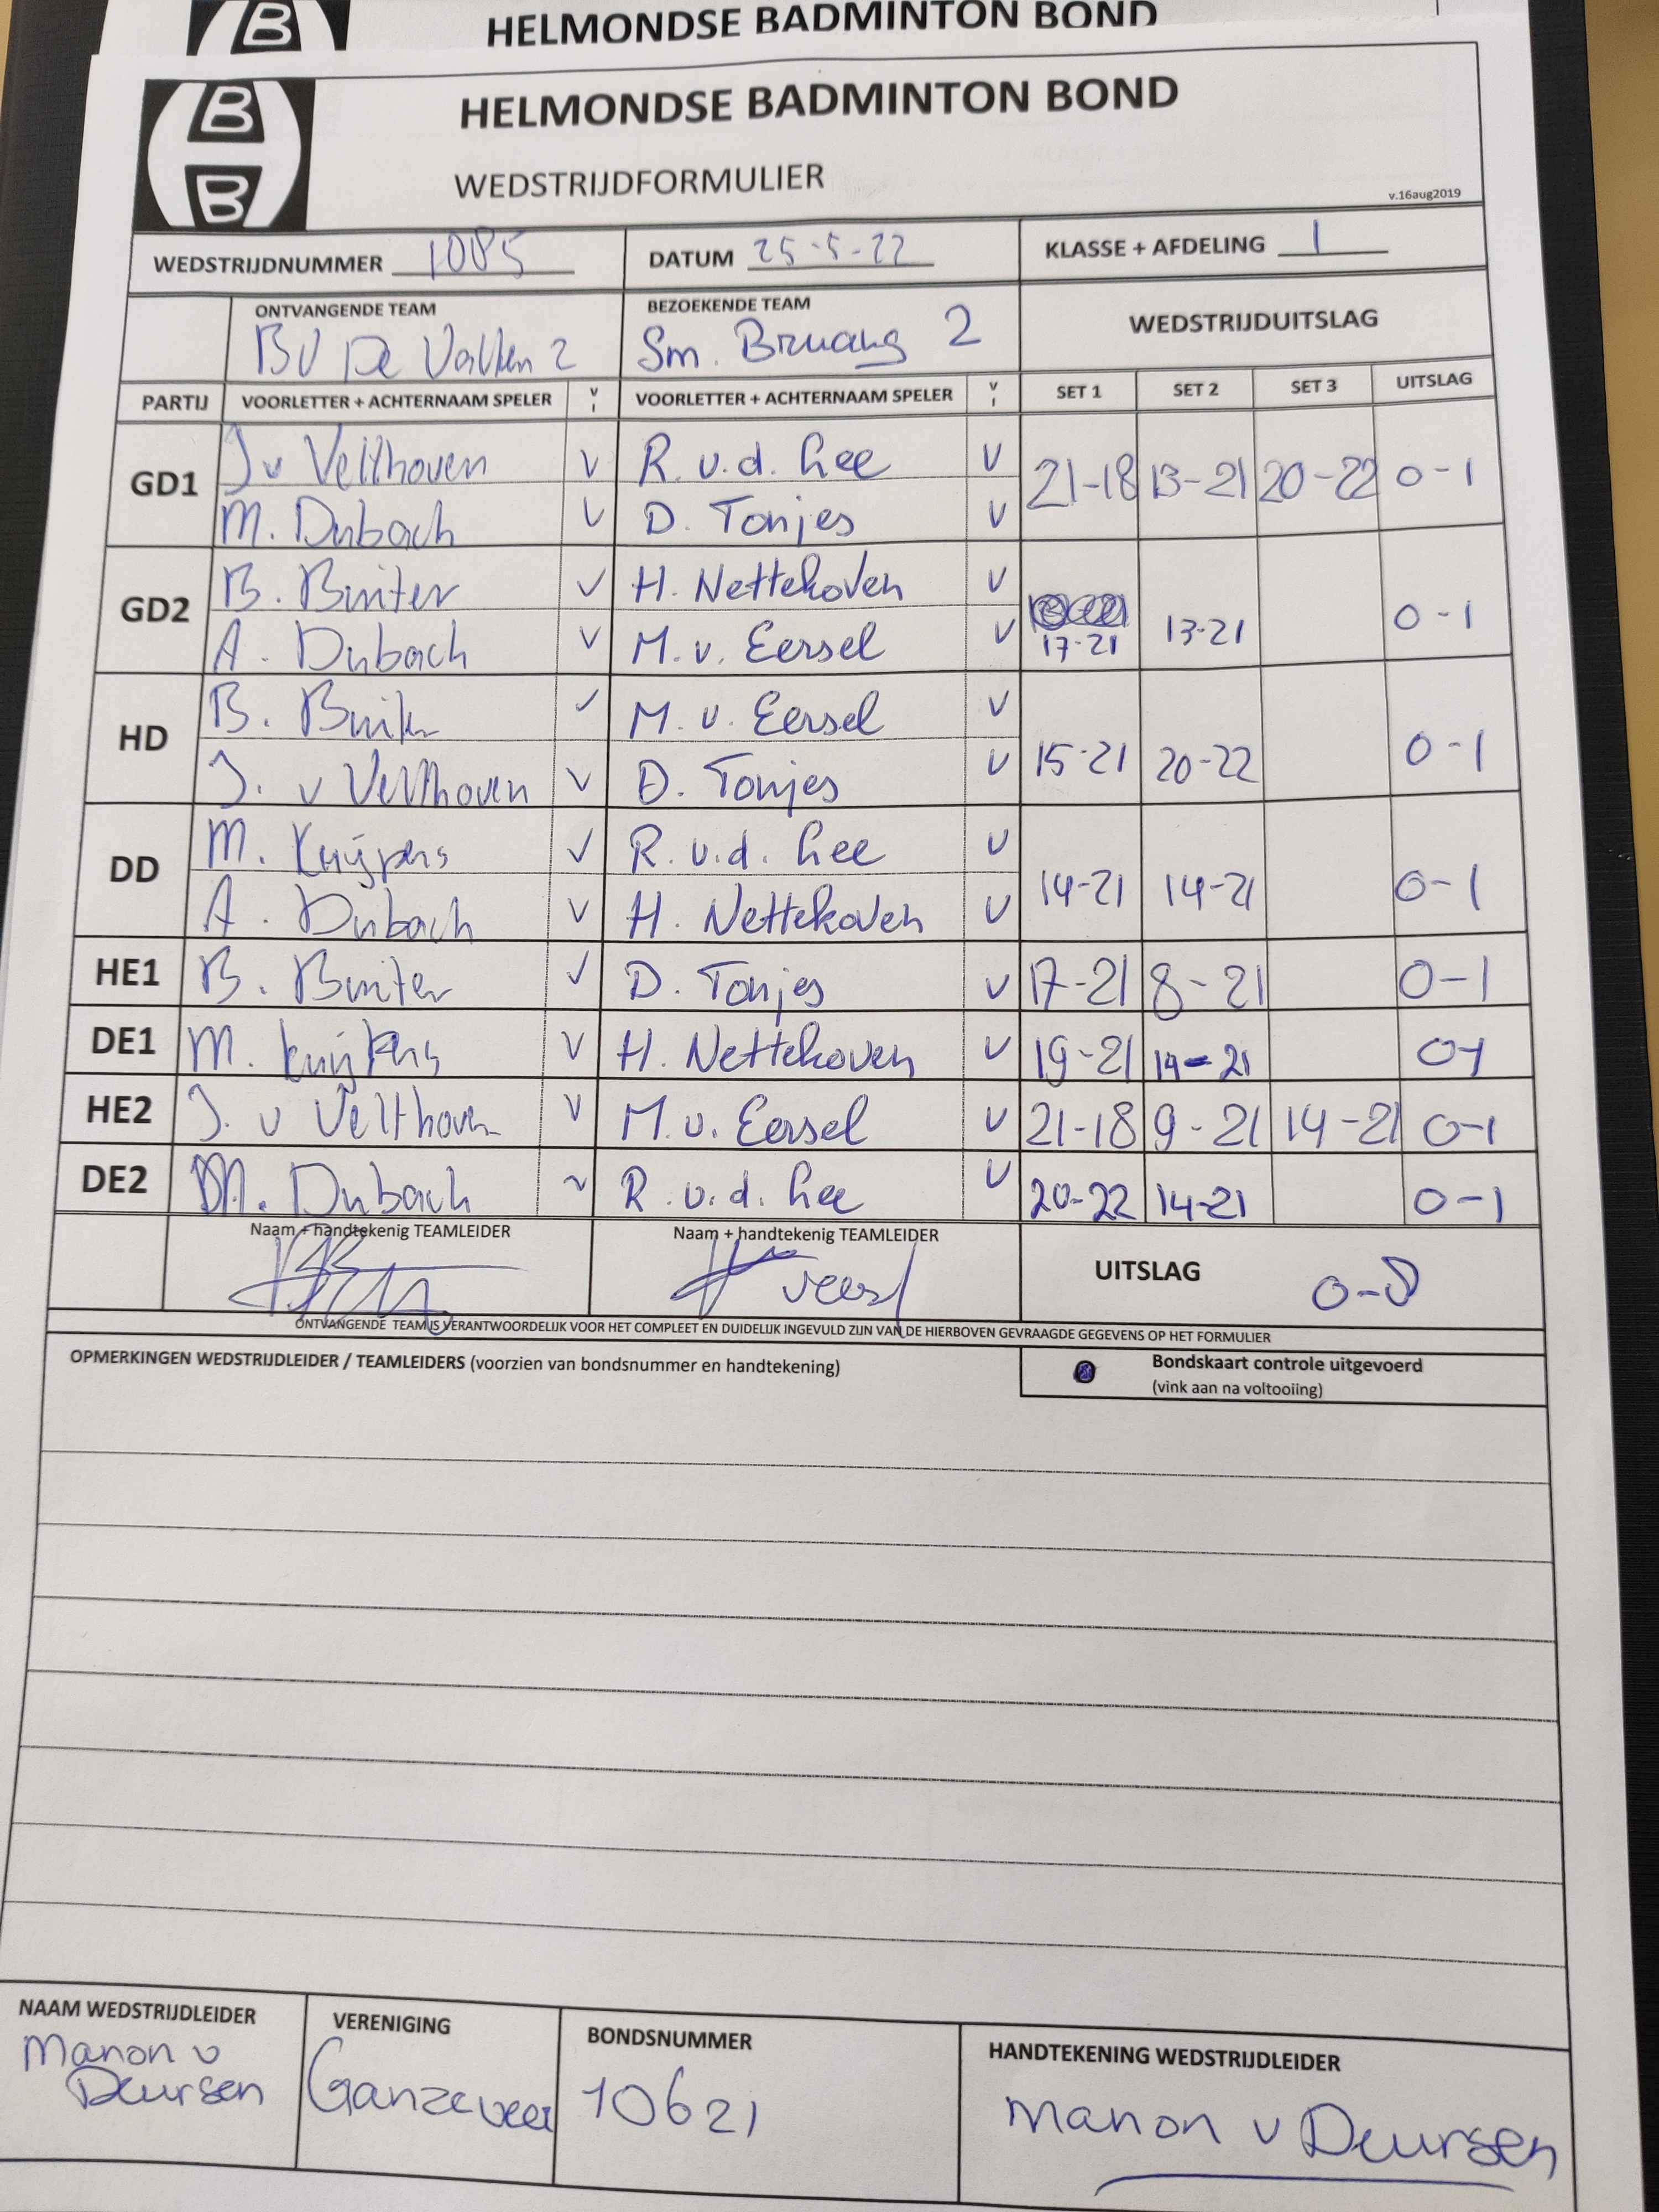 HELMONDSE BADMINTON BOND
HELMONDSE BADMINTON BOND
WEDSTRIJDFORMULIER
v.16aug2019
WEDSTRIJDNUMMER 1085 DATUM 25-5-22 KLASSE + AFDELING 1
ONTVANGENDE TEAM BEZOEKENDE TEAM WEDSTRIJDUITSLAG
BV De Valken 2 Sm. Bruang 2
PARTIJ VOORLETTER + ACHTERNAAM SPELER V I VOORLETTER + ACHTERNAAM SPELER V I SET 1 SET 2 SET 3 UITSLAG
GD1 J v Velthoven V R. v.d. Lee V 21-18 13-21 20-22 0-1
M. Dubach V D. Tonjes V
GD2 B. Buiter V H. Nettekoven V 17-21 13-21 0-1
A. Dubach V M. v. Eersel V
HD B. Buiter V M. v. Eersel V 15-21 20-22 0-1
J. v Velthoven V D. Tonjes V
DD M. Kuijpers V R. v.d. Lee V 14-21 14-21 0-1
A. Dubach V H. Nettekoven V
HE1 B. Buiter V D. Tonjes V 17-21 8-21 0-1
DE1 M. Kuijpers V H. Nettekoven V 19-21 14-21 0-1
HE2 J. v Velthoven V M. v. Eersel V 21-18 9-21 14-21 0-1
DE2 M. Dubach V R. v.d. Lee V 20-22 14-21 0-1
Naam + handtekenig TEAMLEIDER Naam + handtekenig TEAMLEIDER
UITSLAG 0-8
ONTVANGENDE TEAM IS VERANTWOORDELIJK VOOR HET COMPLEET EN DUIDELIJK INGEVULD ZIJN VAN DE HIERBOVEN GEVRAAGDE GEGEVENS OP HET FORMULIER
OPMERKINGEN WEDSTRIJDLEIDER / TEAMLEIDERS (voorzien van bondsnummer en handtekening) Bondskaart controle uitgevoerd
(vink aan na voltooiing)
NAAM WEDSTRIJDLEIDER VERENIGING BONDSNUMMER HANDTEKENING WEDSTRIJDLEIDER
Manon v Deursen Ganzeveer 10621 Manon v Deursen